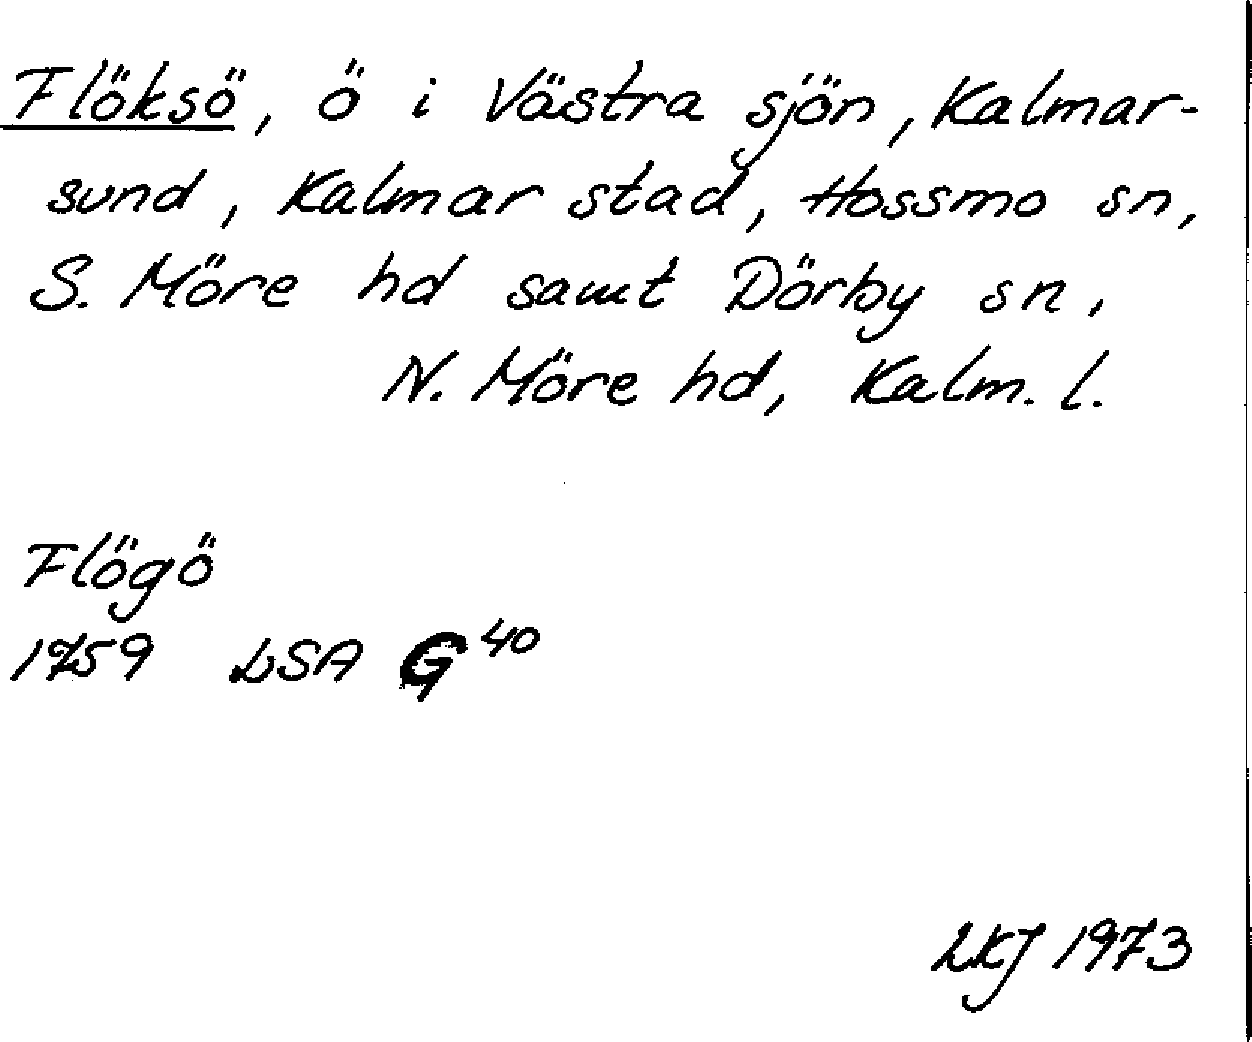 Flöksö, ö i Västra sjön, Kalmar-
sund, Kalmar stad, Hossmo sn,
S. Möre hd samt Dörby sn,
N. Möre hd, Kalm. l.
Flögö
1759 LSA G 40
LKJ 1973